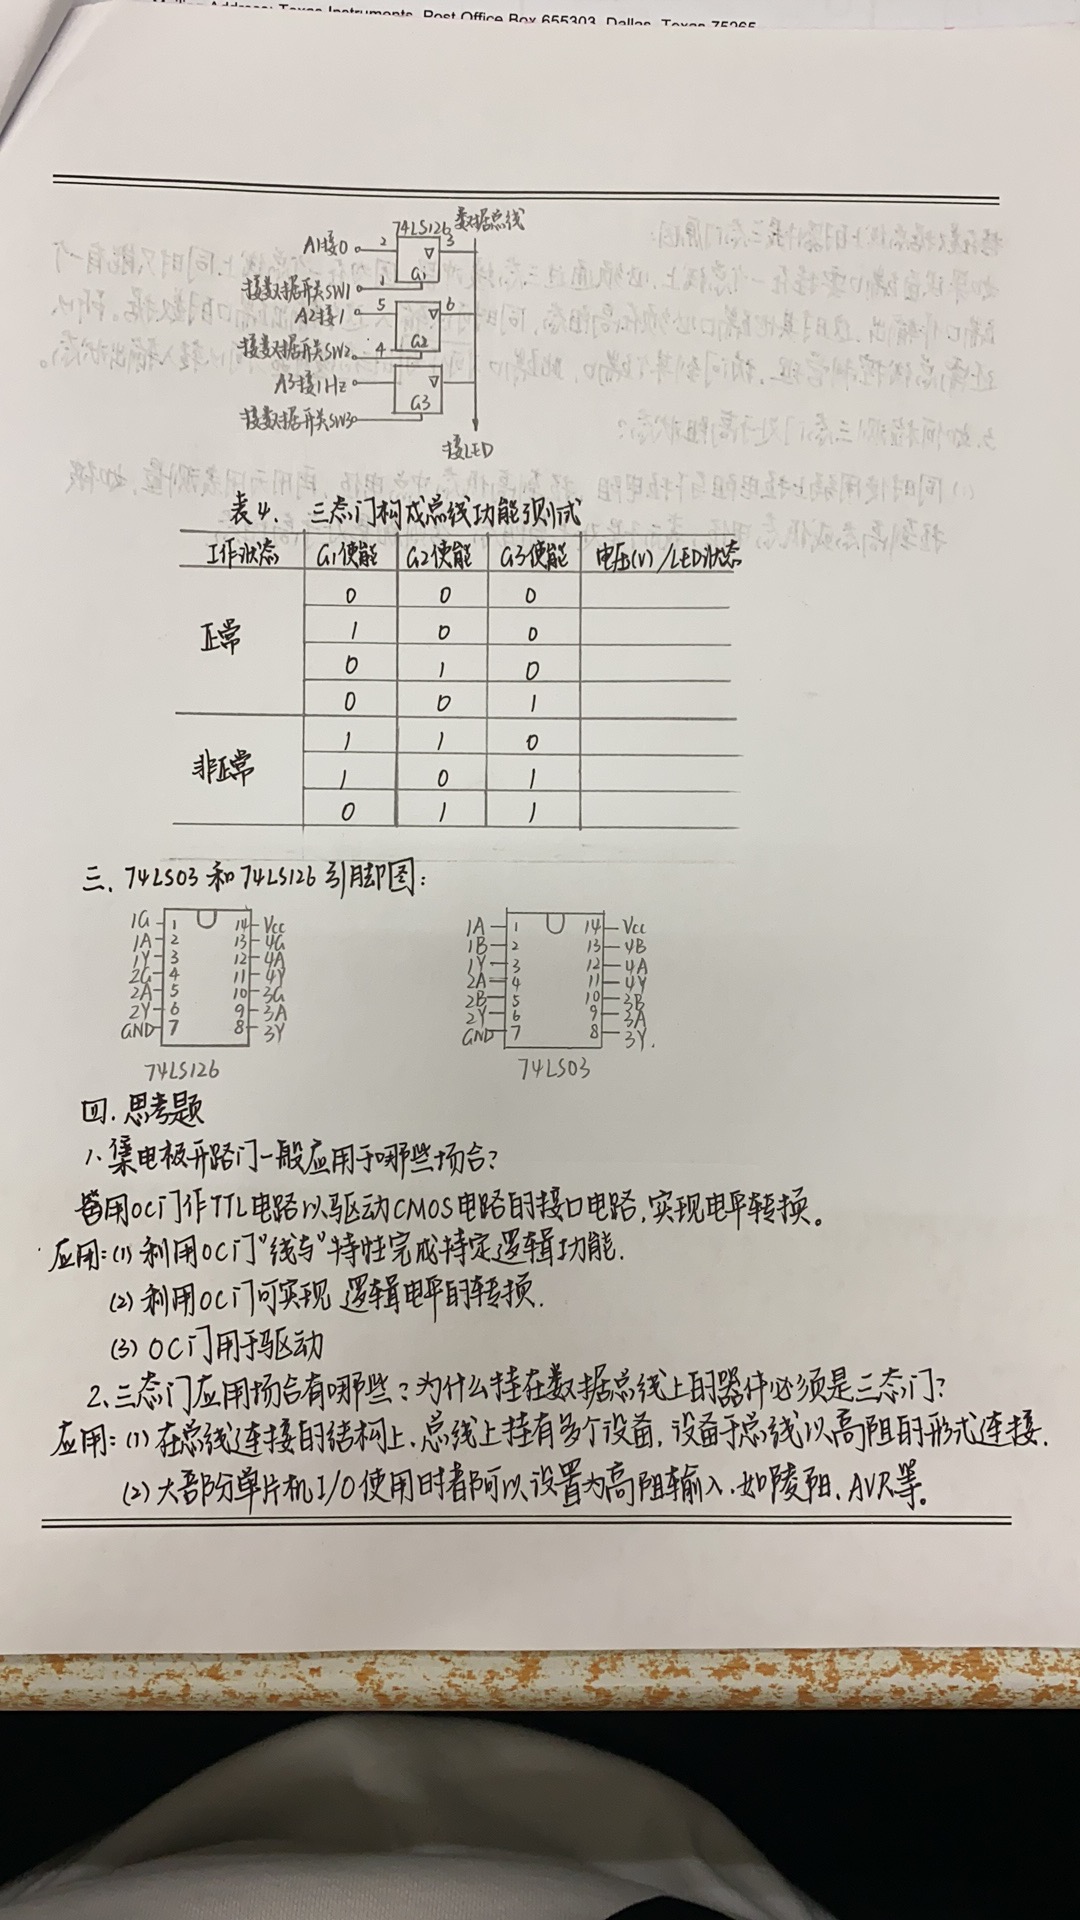 Mailing Address: Texas Instruments, Post Office Box 655303, Dallas, Texas 75265
74LS126 数据总线
A1接0 2 3
G1
接数据开关SW1 1
A2接1 5 6
G2
接数据开关SW2 4
A3接1Hz
G3
接数据开关SW3
接LED
表4. 三态门构成总线功能测试
工作状态 G1使能 G2使能 G3使能 电压(V)/LED状态
0 0 0
正常 1 0 0
0 1 0
0 0 1
1 1 0
非正常 1 0 1
0 1 1
三. 74LS03和74LS126引脚图:
1G 1 14 Vcc
1A 2 13 4G
1Y 3 12 4A
2G 4 11 4Y
2A 5 10 3G
2Y 6 9 3A
GND 7 8 3Y
74LS126
1A 1 14 Vcc
1B 2 13 4B
1Y 3 12 4A
2A 4 11 4Y
2B 5 10 3B
2Y 6 9 3A
GND 7 8 3Y.
74LS03
四. 思考题
1、集电极开路门一般应用于哪些场合?
用OC门作TTL电路以驱动CMOS电路的接口电路,实现电平转换。
应用:(1) 利用OC门"线与"特性完成特定逻辑功能.
(2) 利用OC门可实现 逻辑电平的转换.
(3) OC门用于驱动
2、三态门应用场合有哪些?为什么挂在数据总线上的器件必须是三态门?
应用:(1) 在总线连接的结构上.总线上挂有多个设备,设备于总线以高阻的形式连接.
(2) 大部分单片机I/O使用时都可以设置为高阻输入.如陵阳、AVR等。